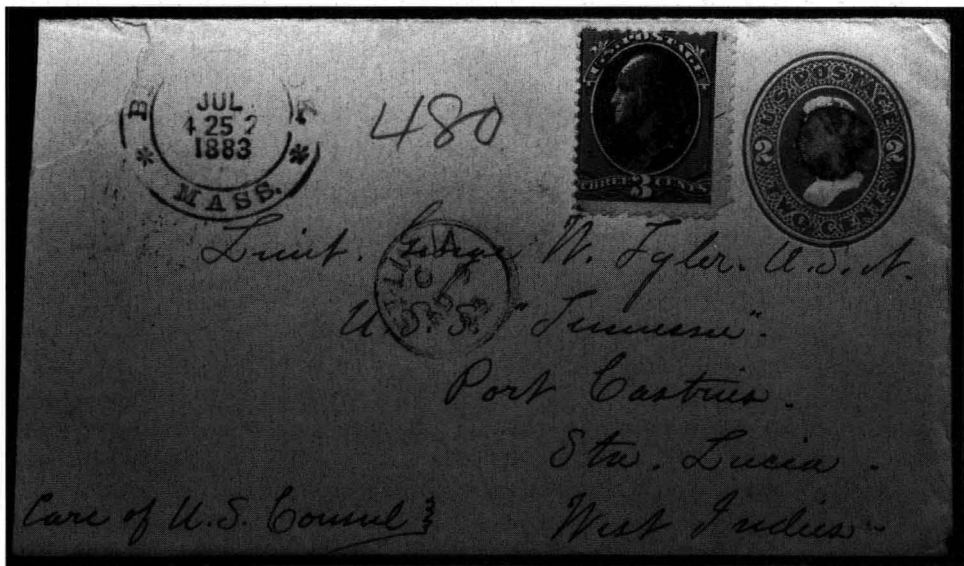 JUL
4 25 2
1883
MASS.
480
U.S. POSTAGE
THREE 3 CENTS
U.S. POSTAGE
2 2
TWO CENTS
Lieut. George W. Tyler. U.S.N.
U.S.S. "Tennessee".
Port Castries.
Sta. Lucia.
Care of U.S. Consul
West Indies.